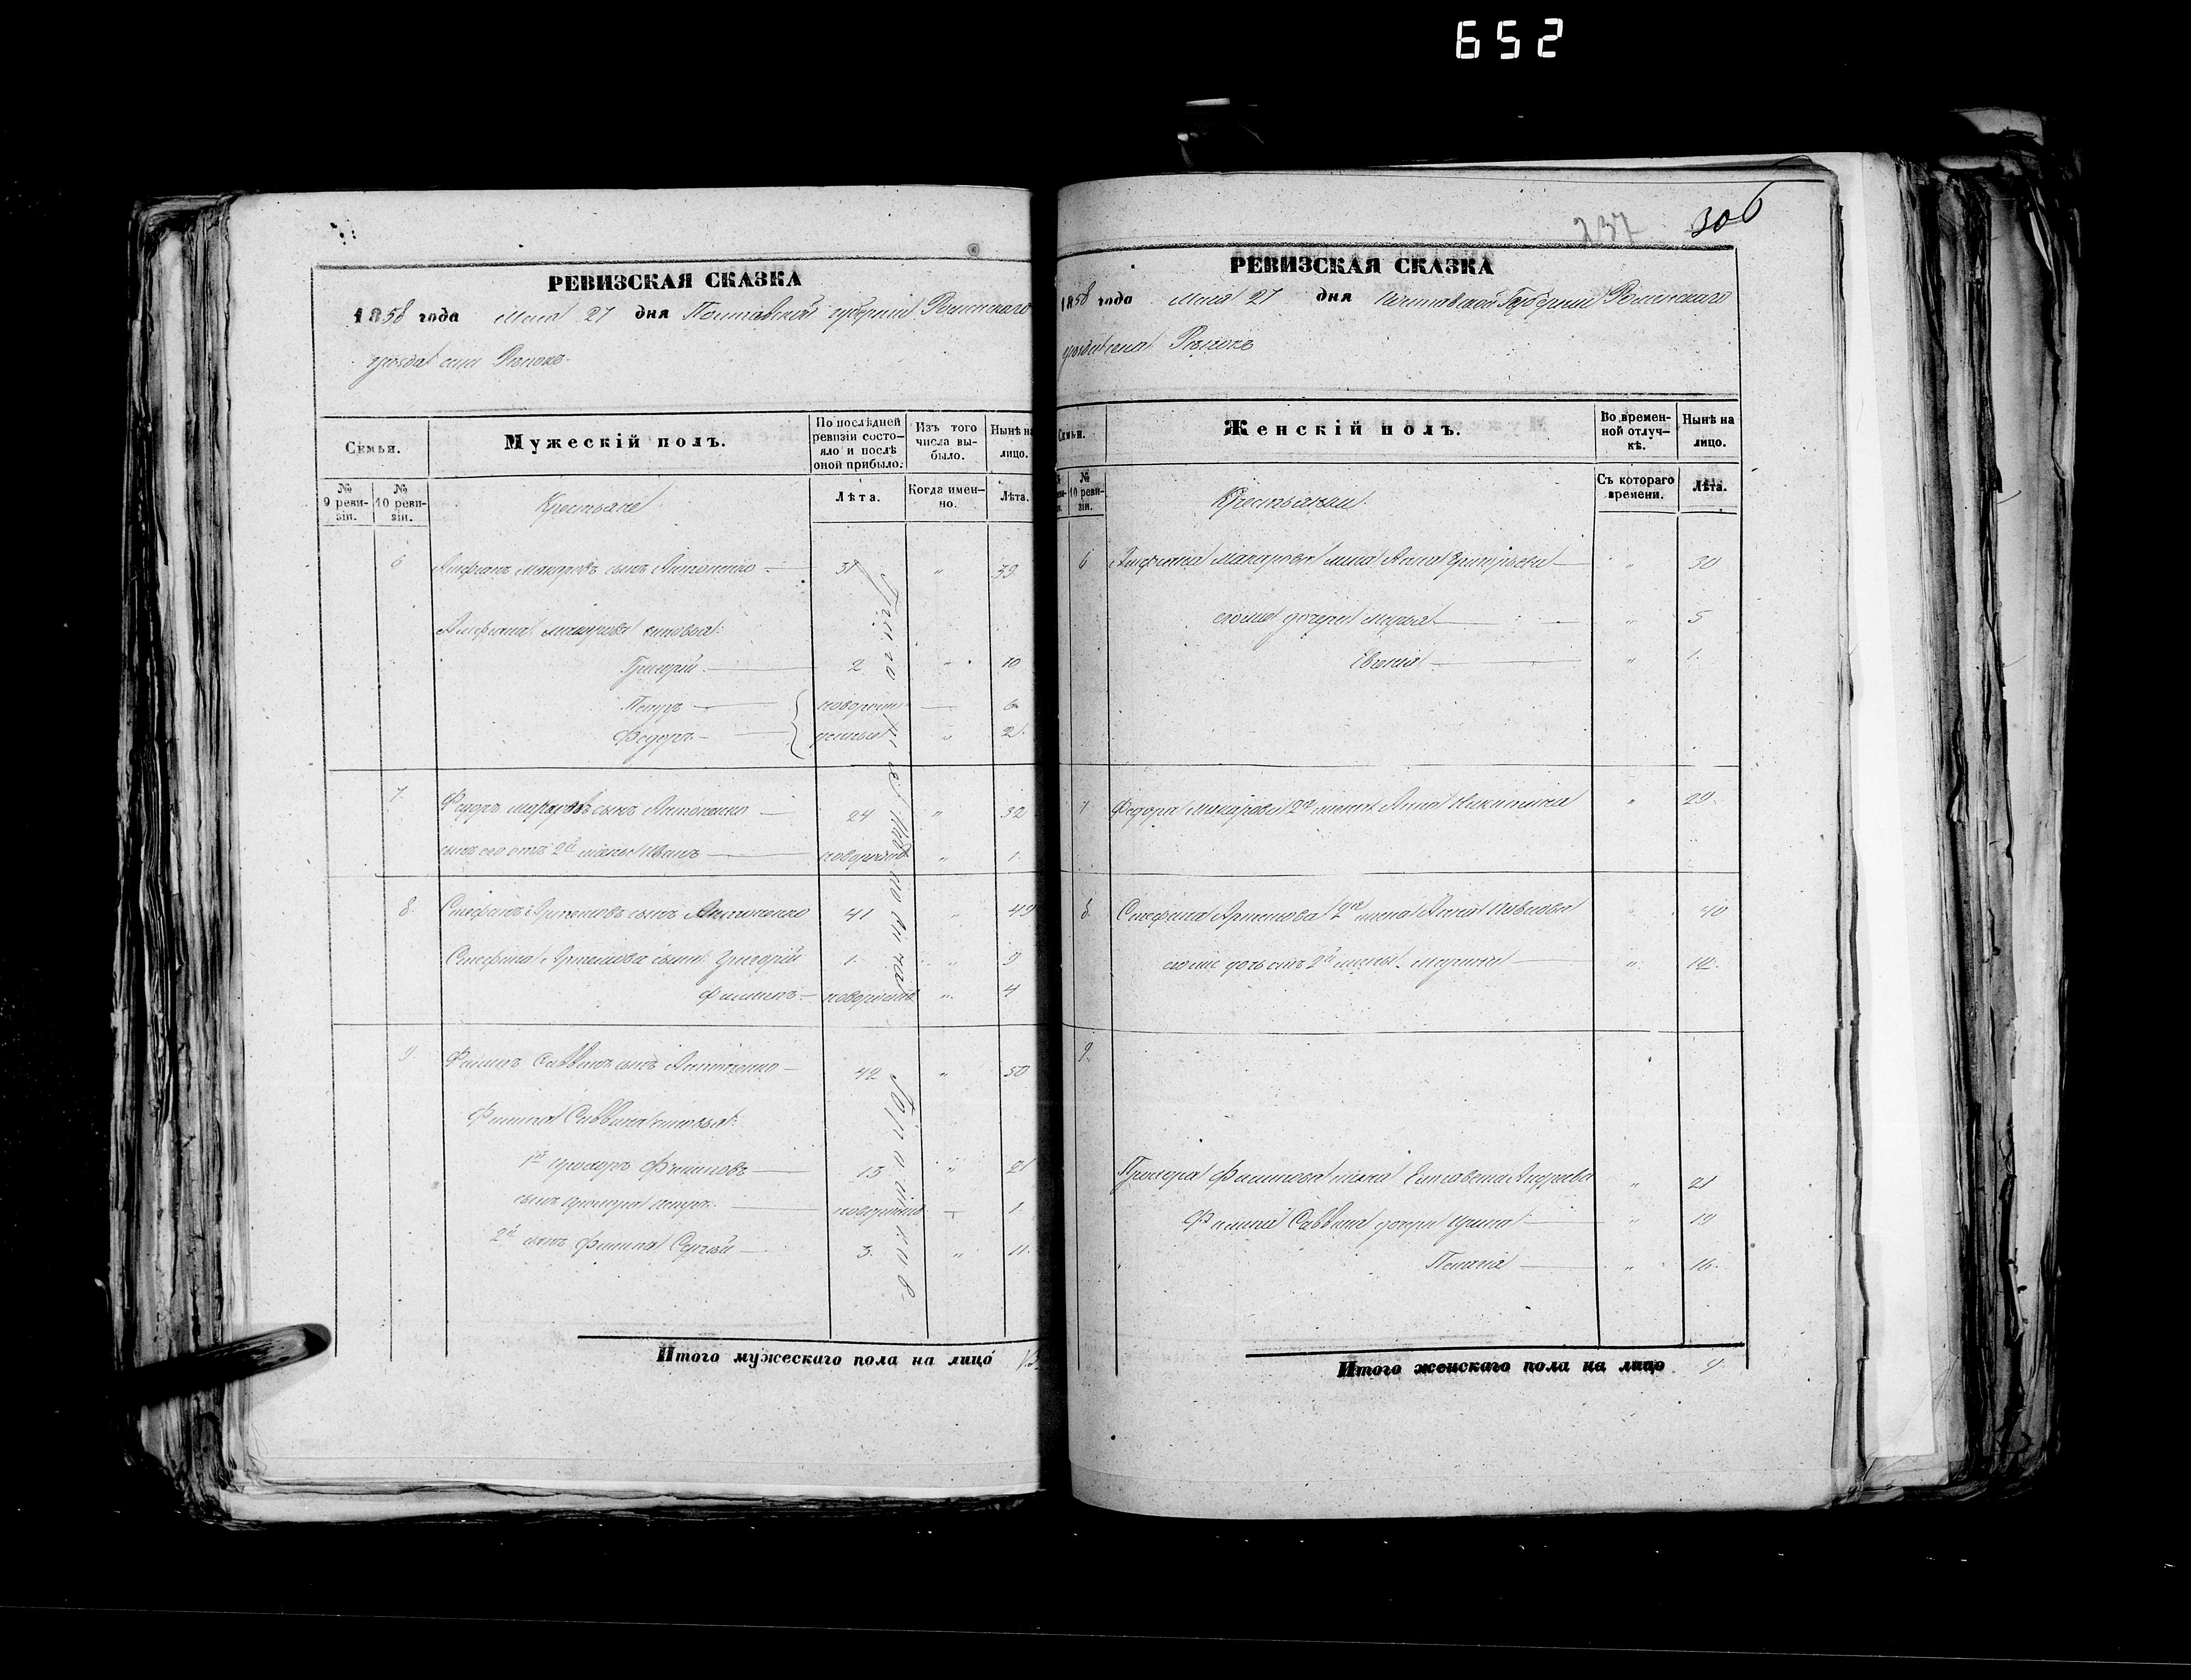 652
РЕВИЗСКАЯ СКАЗКА
1858 года Мая 27 дня Полтавской губерніи Роменскаго
уѣзда села
Семья.
Мужескій полъ.
По послѣдней ревизіи состояло и послѣ оной прибыло.
Изъ того числа выбыло.
Нынѣ на лицо.
№ 9 ревизіи.
№ 10 ревизіи.
Крестьяне
Лѣта.
Когда именно.
Лѣта.
6 Макаровъ сынъ Антоненко 31 " 39
Макарова сыновья:
Григорій 2 " 10
Петръ новорож 6
Федоръ денные " 2
7. Федоръ Макаровъ сынъ Антоненко 24 " 32
сынъ его отъ 2й жены Иванъ новорожд " 1.
8. Стефанъ Артемовъ сынъ Антоненко 41 " 49
Стефана Артемова сыны: Григорій 1. " 9
Филипъ новорожд " 4
9 Филипъ Саввинъ сынъ Антоненко 42 " 50
Филипа Саввина сыновья:
1й Прохоръ Филиповъ 13 " 21
сынъ Прохора Петръ новорожд 1.
2й сынъ Филипа Сергѣй 3. " 11.
Итого мужескаго пола на лицо 13
237 306
РЕВИЗСКАЯ СКАЗКА
1858 года Мая 27 дня Полтавской Губерніи Роменскаго
уѣзда села
Семьи.
Женскій полъ.
Во временной отлучкѣ.
Нынѣ на лицо.
№ 10 ревизіи.
Крестьянки
Съ котораго времени.
Лѣта.
6 Макарова жена Анна Григорьева " 30
дочери Марья " 5
" 1.
7 Федора Макарова 2я жена Анна Никитина " 29.
8. Стефана Артемова 2я жена Анна Павлова " 40
дочь отъ 2й жены Марина " 12.
9.
Прохора Филипова жена Елисавета Андреева " 21
Филипа Саввина дочери Ирина " 19
Пелагія " 16.
Итого женскаго пола на лицо 9.